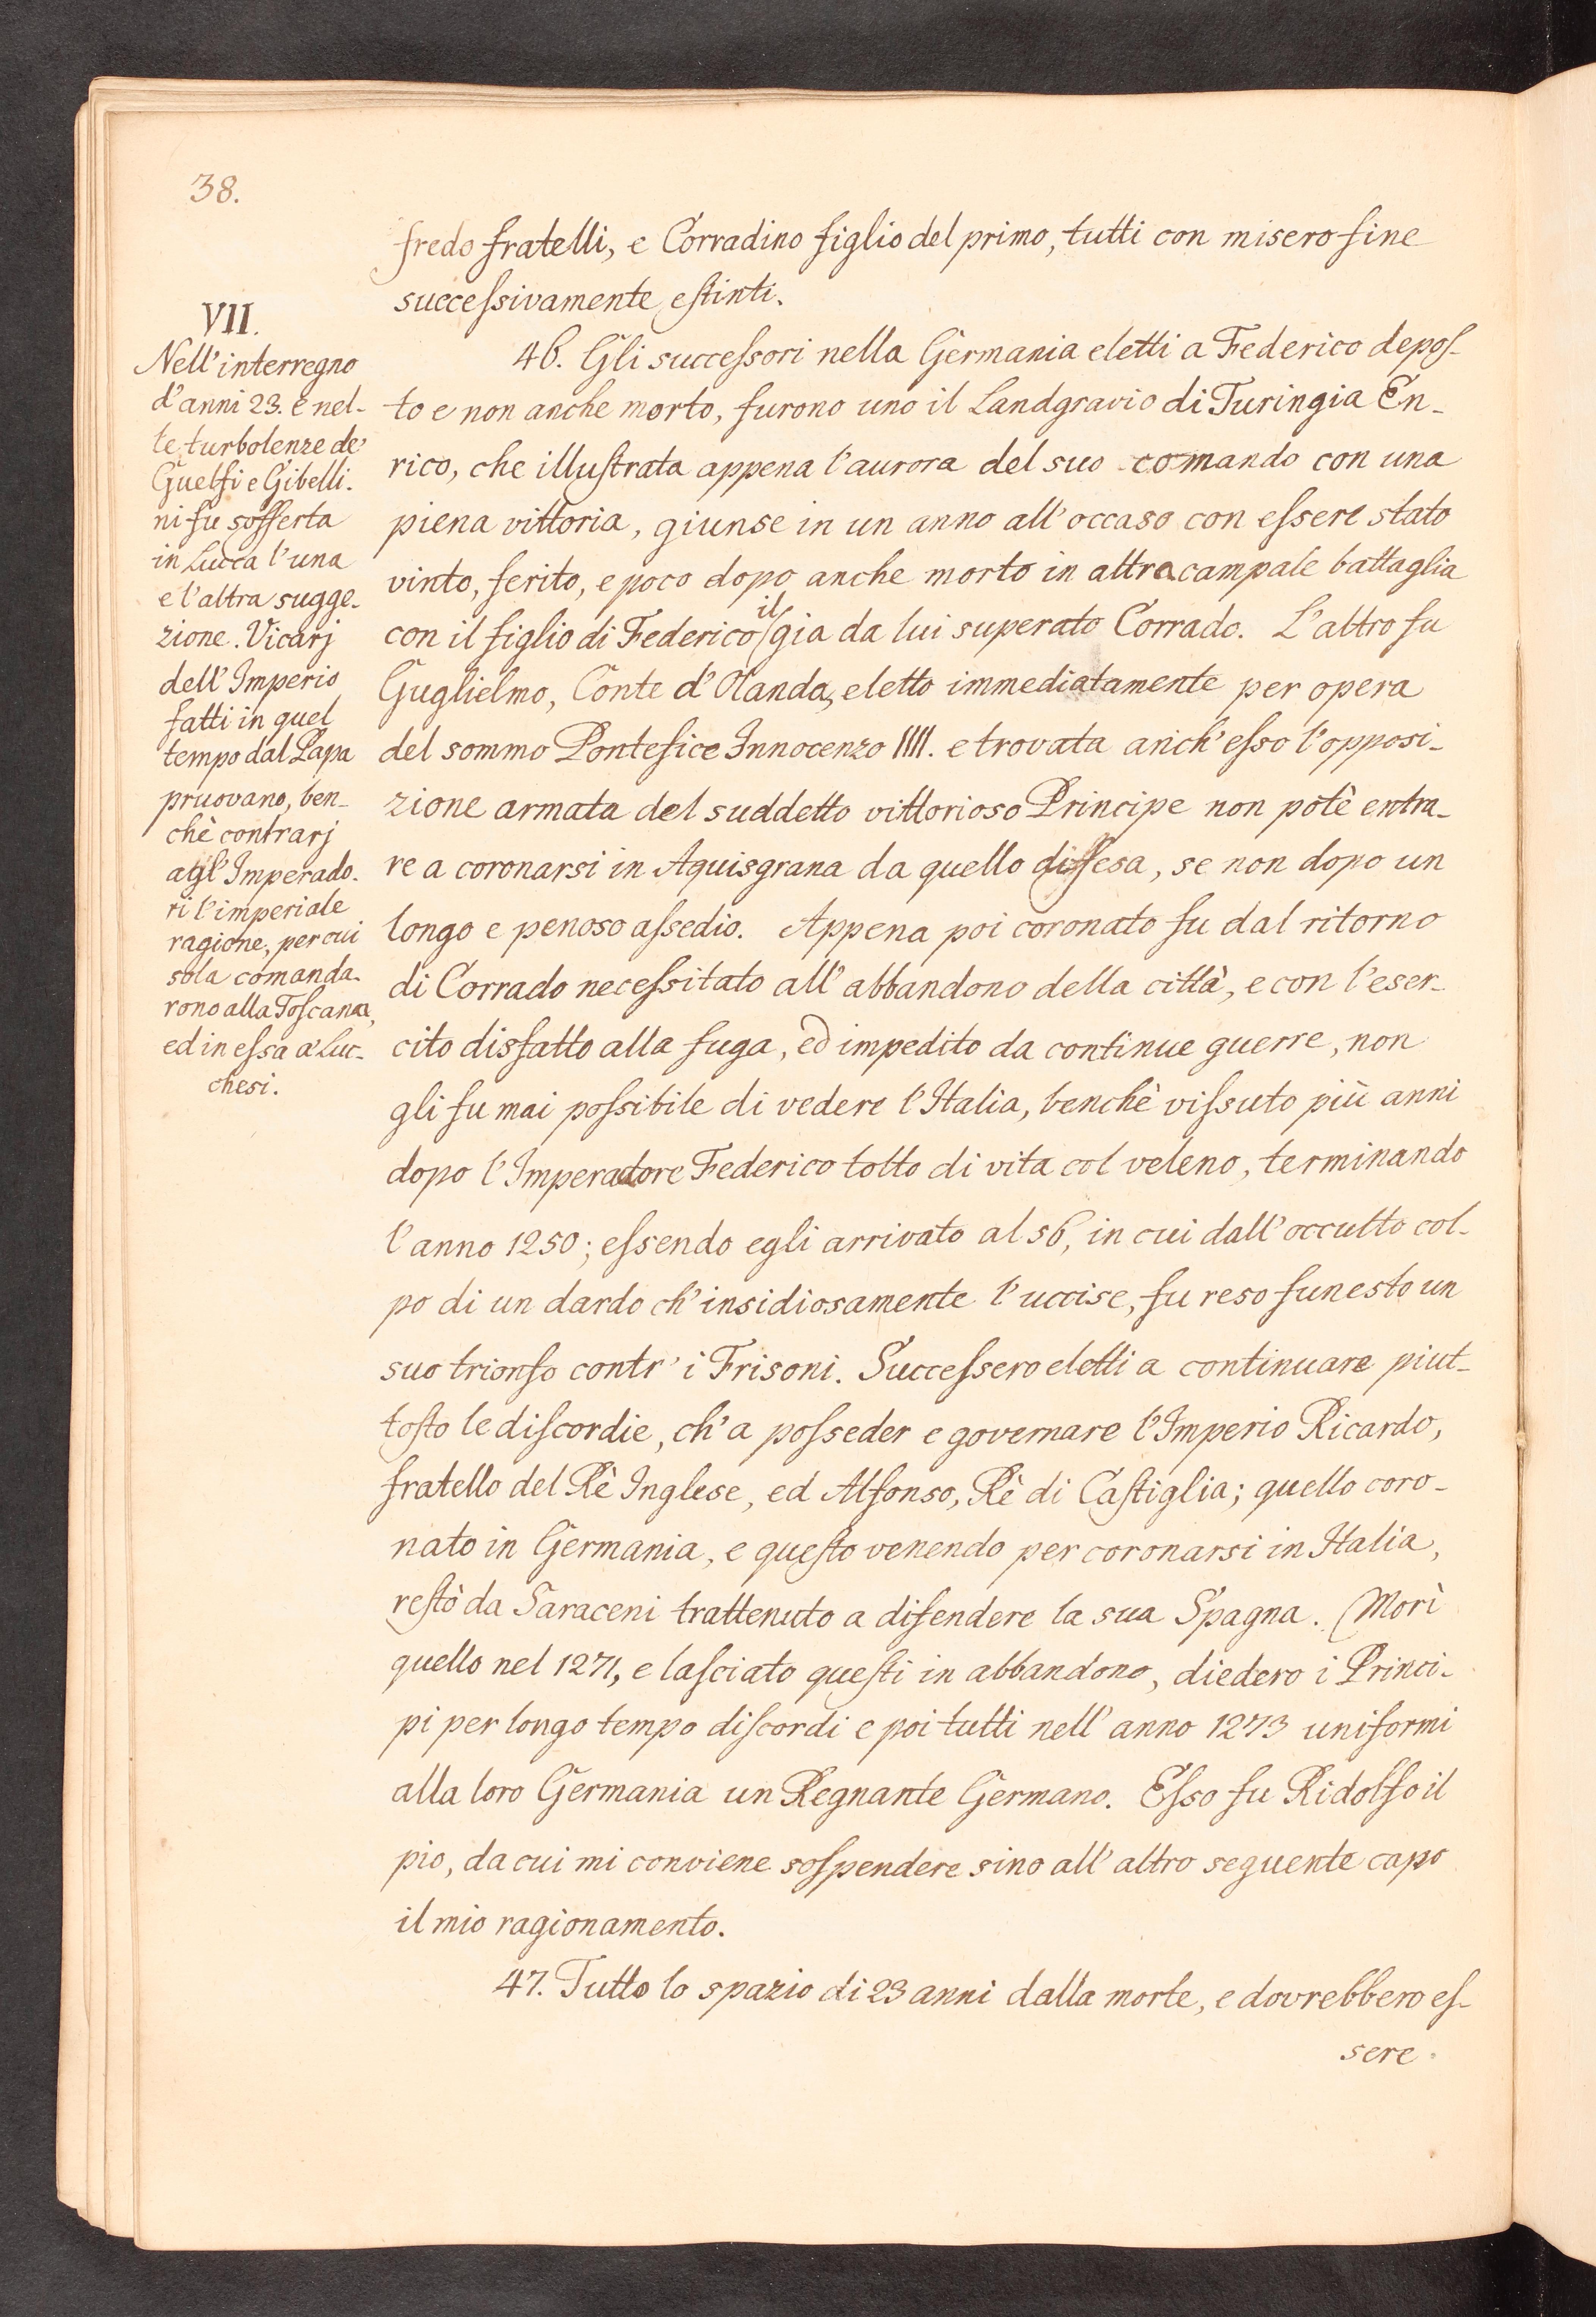 38.
fredo fratelli, e Corradino figlio del primo, tutti con misero fine
successivamente estinti.
46. Gli successori nella Germania eletti a Federico depos-
to e non anche morto, furono uno il Landgravio di Turingia En-
rico, che illustrata appena l'aurora del suo comando con una
piena vittoria, giunse in un anno all'occaso con essere stato
vinto, ferito, e poco dopo anche morto in altra campale battaglia
con il figlio di Federico il gia da lui superato Corrado. L'altro fu
Guglielmo, Conte d'Olanda, eletto immediatamente per opera
del sommo Pontefice Innocenzo IIII. e trovata anch'esso l'opposi-
zione armata del suddetto vittorioso Principe non potè entra-
re a coronarsi in Aquisgrana da quello difesa, se non dopo un
longo e penoso assedio. Appena poi coronato fu dal ritorno
di Corrado necessitato all'abbandono della città, e con l'eser-
cito disfatto alla fuga, ed impedito da continue guerre, non
gli fu mai possibile di vedere l'Italia, benchè vissuto più anni
dopo l'Imperadore Federico tolto di vita col veleno, terminando
l'anno 1250; essendo egli arrivato al 56, in cui dall'occulto col-
po di un dardo ch'insidiosamente l'uccise, fu reso funesto un
suo trionfo contr'i Frisoni. Successero eletti a continuare piut-
tosto le discordie, ch'a posseder e governare l'Imperio Ricardo,
fratello del Rè Inglese, ed Alfonso, Rè di Castiglia; quello coro-
nato in Germania, e questo venendo per coronarsi in Italia,
restò da Saraceni trattenuto a difendere la sua Spagna. Morì
quello nel 1271, e lasciato questi in abbandono, diedero i Princi-
pi per longo tempo discordi e poi tutti nell'anno 1273 uniformi
alla loro Germania un Regnante Germano. Esso fu Ridolfo il
pio, da cui mi conviene sospendere sino all'altro seguente capo
il mio ragionamento.
47. Tutto lo spazio di 23 anni dalla morte, e dovrebbero es-
sere
VII.
Nell'interregno
d'anni 23. e nel-
le turbolenze de'
Guelfi e Gibelli-
ni fu sofferta
in Lucca l'una
e l'altra sugge-
zione. Vicarj
dell'Imperio
fatti in quel
tempo dal Papa
pruovano, ben-
chè contrarj
agl'Imperado-
ri l'imperiale
ragione, per cui
sola comanda-
rono alla Toscana,
ed in essa a'Luc-
chesi.